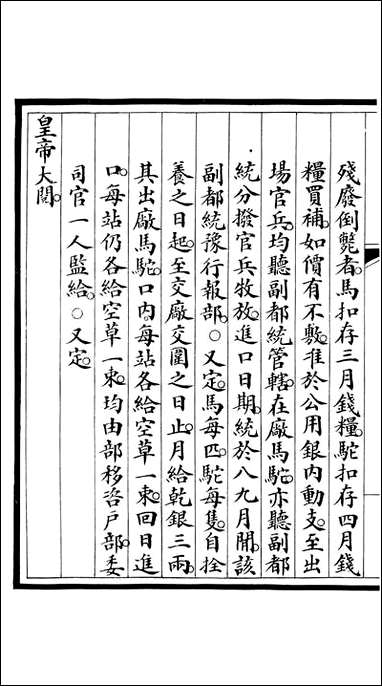 殘廢倒斃者。馬扣存三月錢糧。駝扣存四月錢
糧買補。如價有不敷。准於公用銀內動支。至出
場官兵。均聽副都統管轄。在廠馬駝。亦聽副都
統分撥官兵牧放。進口日期。統於八九月閒。該
副都統豫行報部。○又定。馬每匹。駝每隻。自拴
養之日起。至交廠交圍之日止。月給乾銀三兩。
其出廠馬駝。口內每站各給空草一束。回日進
口。每站仍各給空草一束。均由部移咨戶部。委
司官一人監給。○又定。
皇帝大閱。